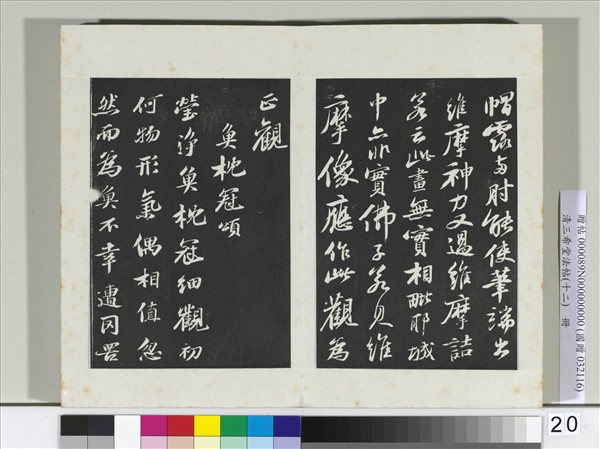 帽露两肘能使筆端出
維摩神力又過維摩詰
若云此畫無實相毗耶城
中亦非實佛子若見維
摩像應作此觀為
正觀
魚枕冠頌
瑩淨魚枕冠細觀初
何物形氣偶相值忽
然而為魚不幸遭罔罟
贈帖 000089N000000000 (國贈 032116)
清三希堂法帖(十二) 冊
20